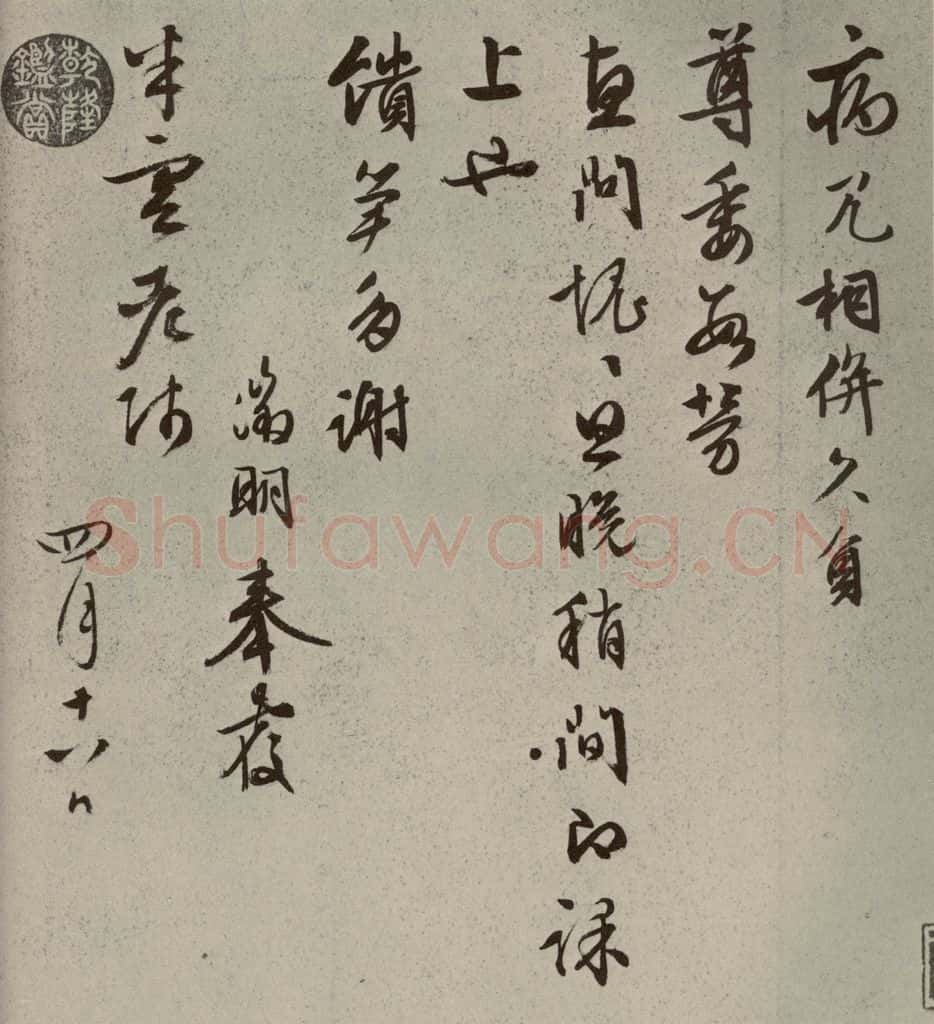 病冗相併久負
尊委每勞
問愧愧旦晚稍間即課
上也
饋笋多謝
徵明奉覆
半雲老師
四月十八日
乾隆鑑賞
Shufawang.CN